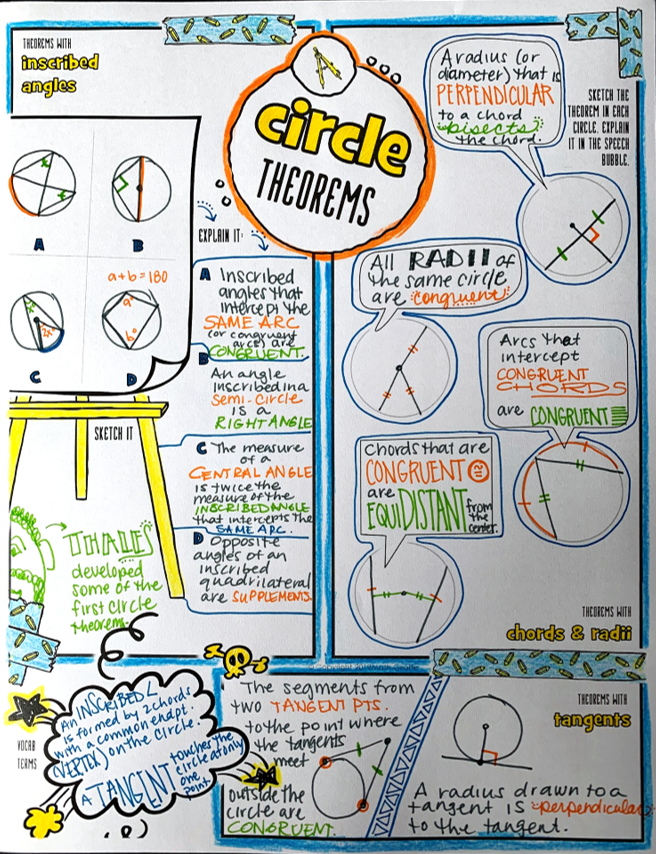 THEOREMS WITH
inscribed
angles
circle
THEOREMS
A radius (or
diameter) that is
PERPENDICULAR
to a chord
bisects
the chord.
SKETCH THE
THEOREM IN EACH
CIRCLE. EXPLAIN
IT IN THE SPEECH
BUBBLE.
A
B
a+b=180
x
2x
a
b
C
D
SKETCH IT
EXPLAIN IT:
A Inscribed
angles that
intercept the
SAME ARC
(or congruent
arcs) are
CONGRUENT.
B
An angle
inscribed in a
Semi-Circle
is a
RIGHT ANGLE
C The measure
of a
CENTRAL ANGLE
is twice the
measure of the
INSCRIBED ANGLE
that intercepts the
SAME ARC.
D Opposite
angles of an
inscribed
quadrilateral
are SUPPLEMENTS.
THALES
developed
some of the
first circle
theorems.
All RADII of
the same circle
are congruent.
Arcs that
intercept
CONGRUENT
CHORDS
are CONGRUENT
Chords that are
CONGRUENT ≅
are
EQUIDISTANT from
the
center.
THEOREMS WITH
chords & radii
VOCAB
TERMS
An INSCRIBED ∠
is formed by 2 chords
with a common endpt.
(VERTEX) on the circle.
A TANGENT touches the
circle at only
one
point
The segments from
two TANGENT PTS.
to the point where
the tangents
meet
outside the
circle are
CONGRUENT.
THEOREMS WITH
tangents
A radius drawn to a
tangent is perpendicular
to the tangent.